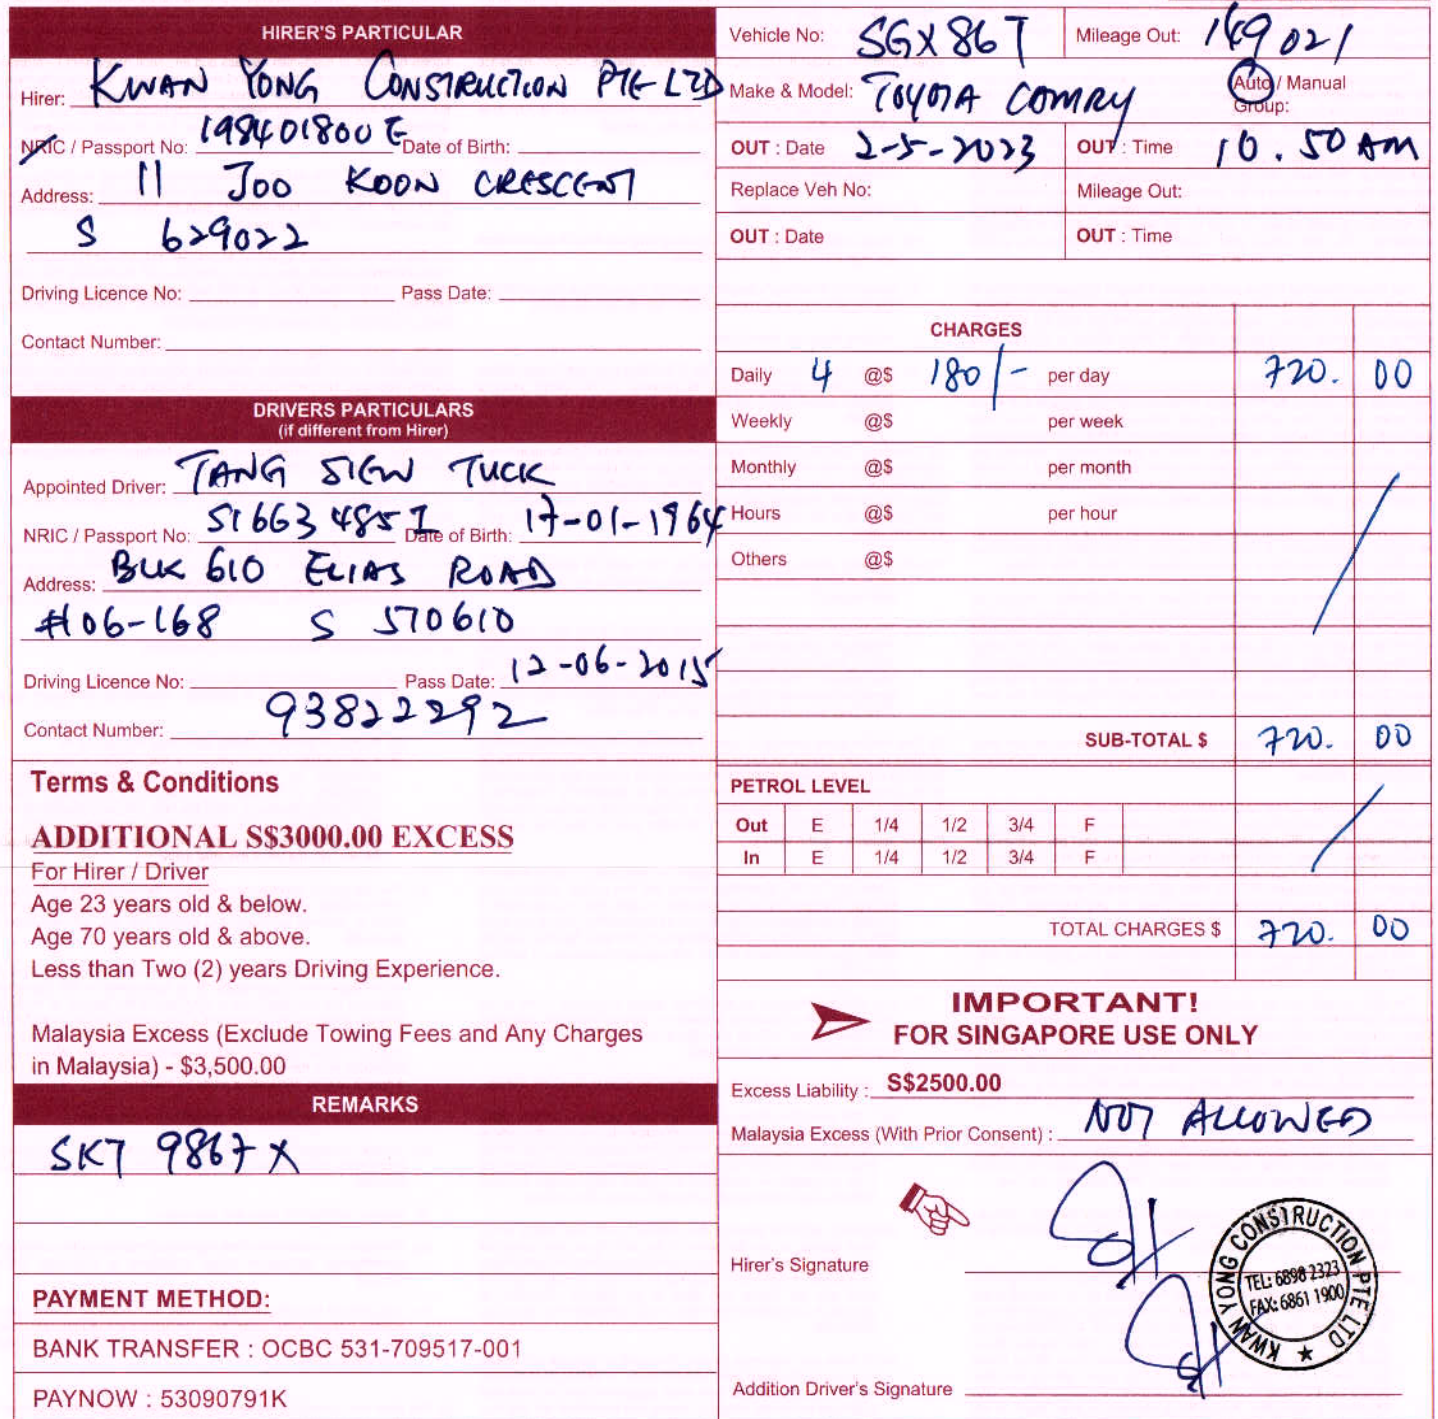 HIRER'S PARTICULAR
Hirer: KWAN YONG CONSTRUCTION PTE LTD
NRIC / Passport No: 198401800E Date of Birth:
Address: 11 JOO KOON CRESCENT
S 629022
Driving Licence No: Pass Date:
Contact Number:
DRIVERS PARTICULARS
(if different from Hirer)
Appointed Driver: TANG SIEW TUCK
NRIC / Passport No: S1663485I Date of Birth: 17-01-1964
Address: BLK 610 ELIAS ROAD
#06-168 S 570610
Driving Licence No: Pass Date: 12-06-2015
Contact Number: 93822292
Terms & Conditions
ADDITIONAL S$3000.00 EXCESS
For Hirer / Driver
Age 23 years old & below.
Age 70 years old & above.
Less than Two (2) years Driving Experience.
Malaysia Excess (Exclude Towing Fees and Any Charges
in Malaysia) - $3,500.00
REMARKS
SKT 9867X
PAYMENT METHOD:
BANK TRANSFER : OCBC 531-709517-001
PAYNOW : 53090791K
Vehicle No: SGX86T Mileage Out: 149021
Make & Model: TOYOTA COMRY Auto / Manual
Group:
OUT : Date 2-5-2023 OUT : Time 10.50 AM
Replace Veh No: Mileage Out:
OUT : Date OUT : Time
CHARGES
Daily 4 @$ 180/- per day 720. 00
Weekly @$ per week
Monthly @$ per month
Hours @$ per hour
Others @$
SUB-TOTAL $ 720. 00
PETROL LEVEL
Out E 1/4 1/2 3/4 F
In E 1/4 1/2 3/4 F
TOTAL CHARGES $ 720. 00
IMPORTANT!
FOR SINGAPORE USE ONLY
Excess Liability : S$2500.00
Malaysia Excess (With Prior Consent) : NOT ALLOWED
Hirer's Signature
KWAN YONG CONSTRUCTION PTE LTD
TEL: 6898 2323
FAX: 6861 1900
Addition Driver's Signature